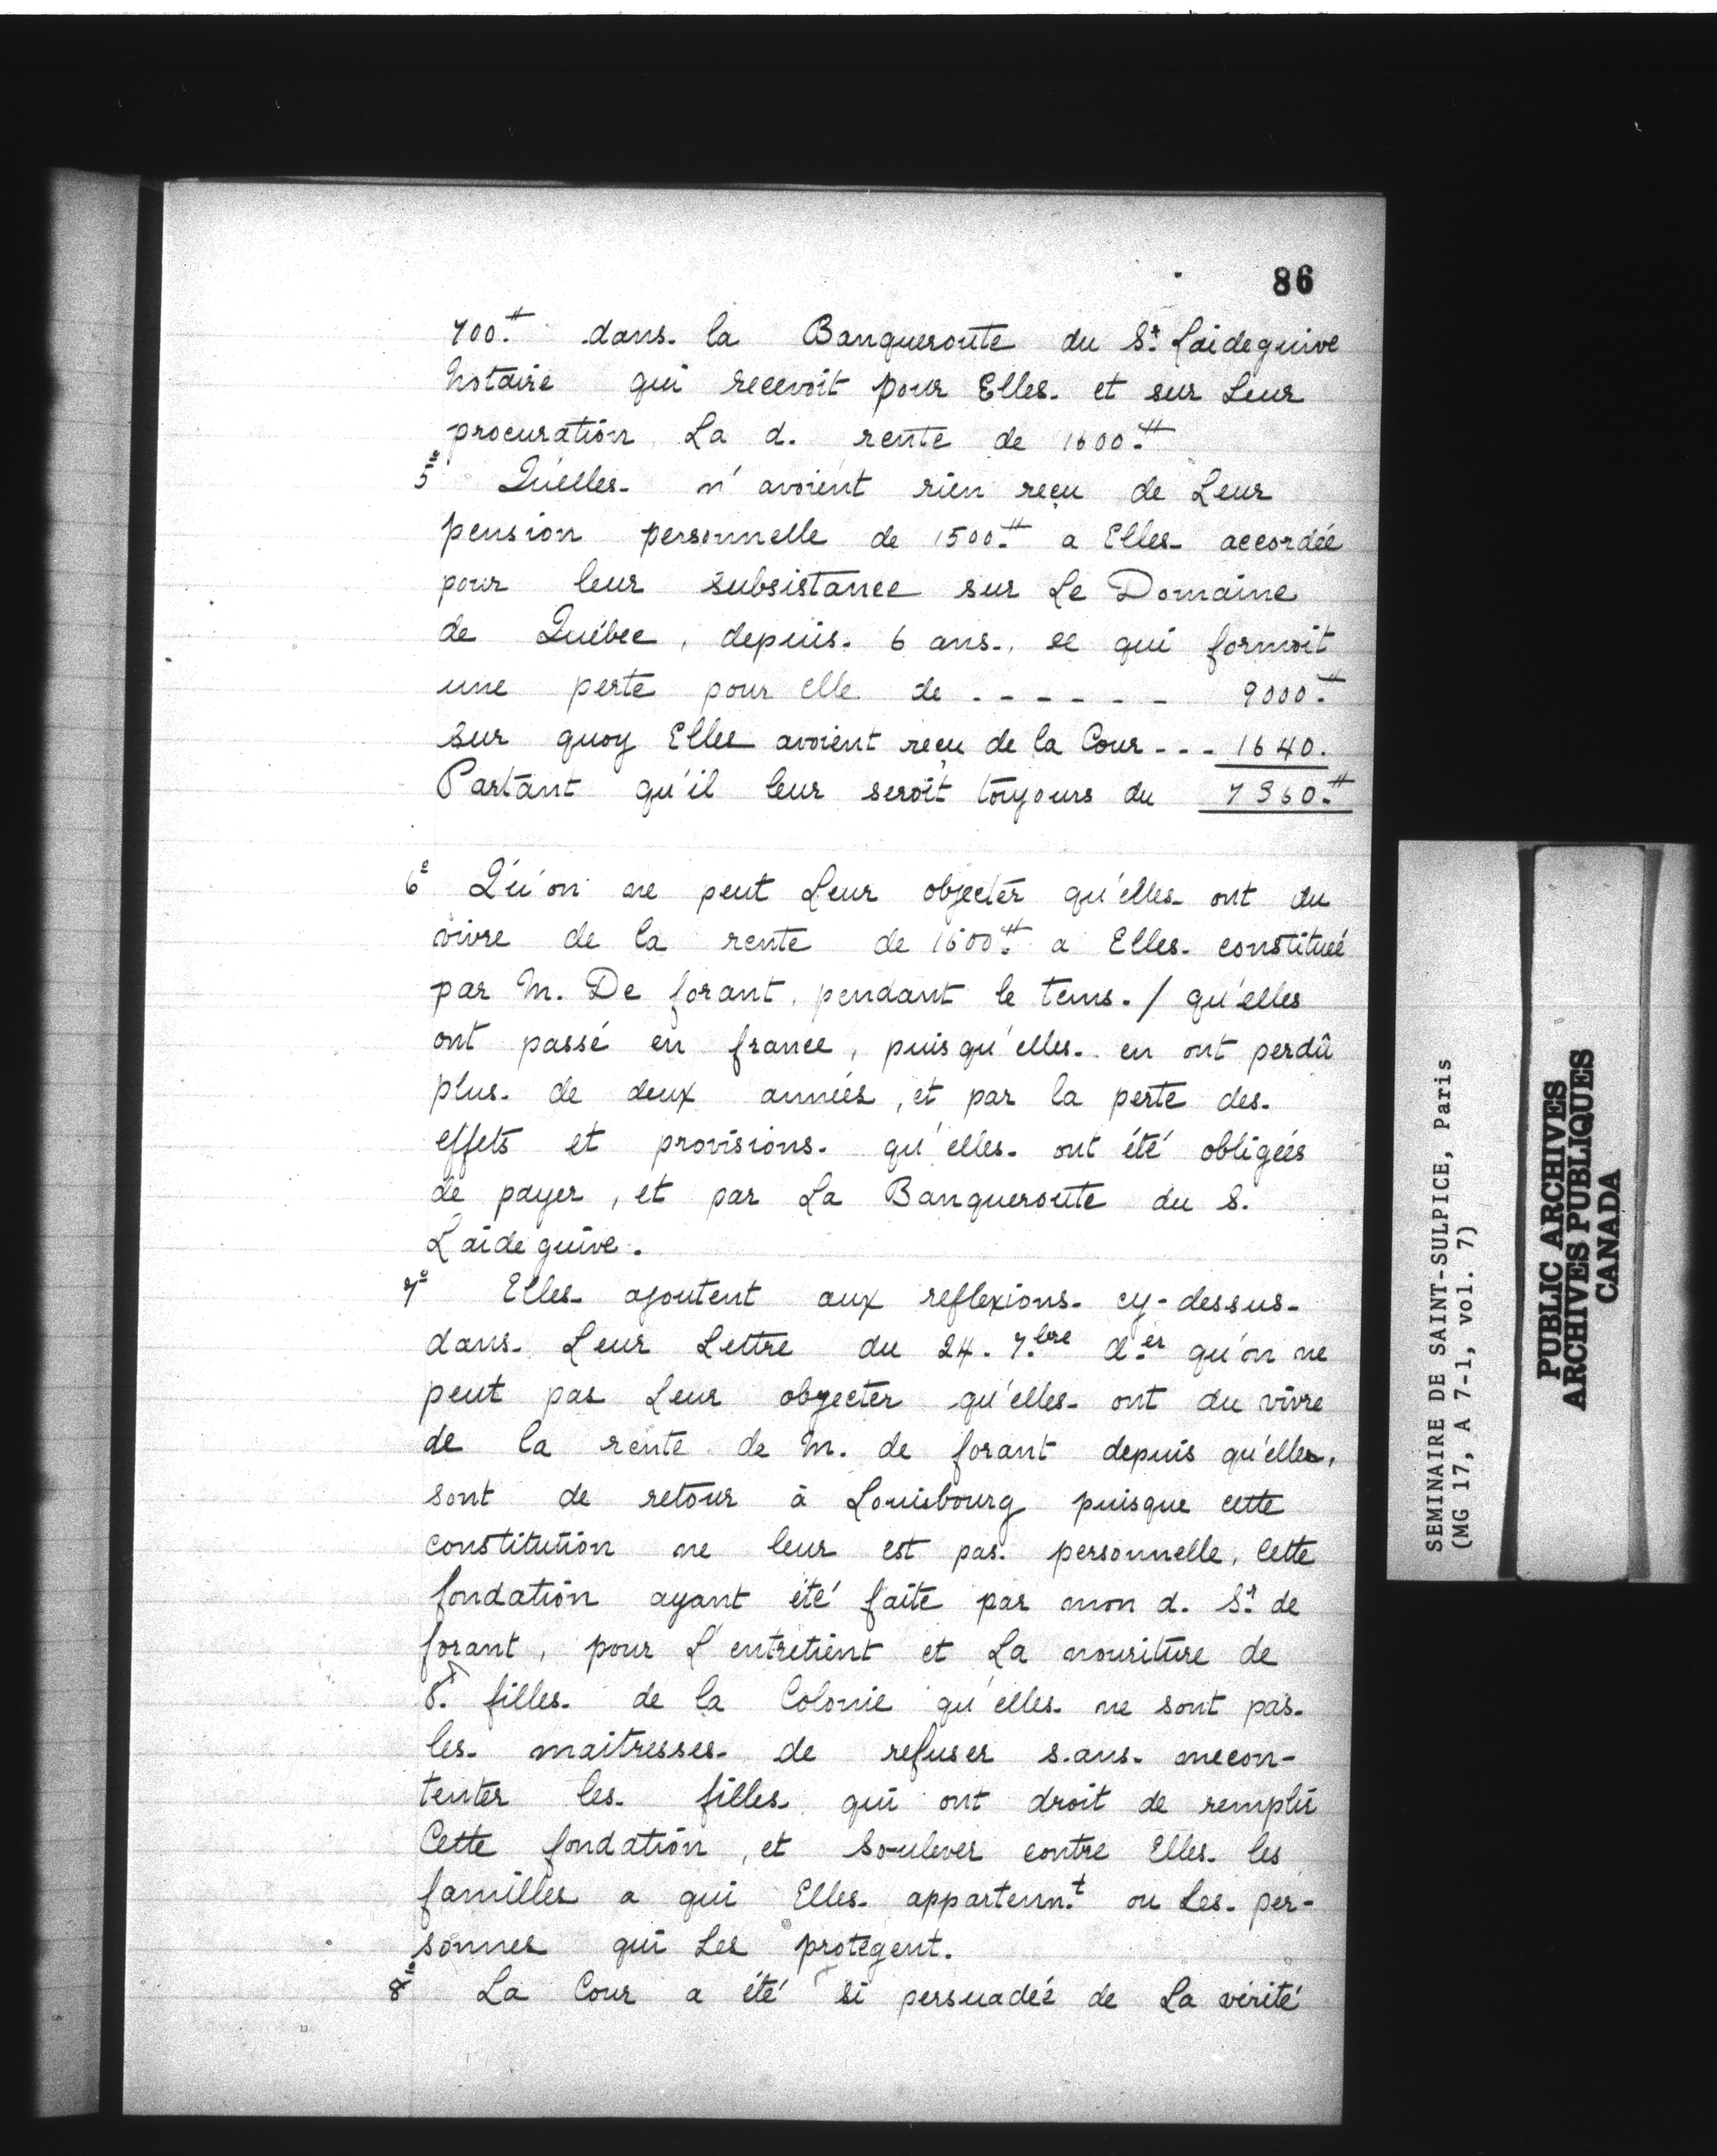 86
700.ᵗᵗ dans la Banqueroute du S.ʳ Laideguive
Notaire qui recevoit pour Elles et sur Leur
procuration La d. rente de 1600.ᵗᵗ
5º Qu'elles n'avoient rien reçu de Leur
pension personnelle de 1500.ᵗᵗ a Elles accordée
pour leur subsistance sur Le Domaine
de Québec, depuis 6 ans, ce qui formoit
une perte pour elle de - - - - - - 9000.ᵗᵗ
sur quoy Elles avoient reçu de la Cour - - - 1640.
Partant qu'il leur seroit toujours du 7360.ᵗᵗ
6º Qu'on ne peut Leur objecter qu'elles ont du
vivre de la rente de 1600.ᵗᵗ a Elles constituée
par M. De forant, pendant le tems / qu'elles
ont passé en france, puisqu'elles en ont perdû
plus de deux années, et par la perte des
effets et provisions qu'elles ont été obligées
de payer, et par La Banqueroute du S.
Laideguive.
7º Elles ajoutent aux reflexions cy-dessus
dans Leur Lettre du 24. 7.bre d.er qu'on ne
peut pas Leur objecter qu'elles ont du vivre
de la rente de M. de forant depuis qu'elles,
sont de retour à Louisbourg puisque cette
constitution ne leur est pas personnelle, cette
fondation ayant été faite par mon d. S.ʳ de
forant, pour L'entretient et La nouriture de
8. filles de la Colonie qu'elles ne sont pas
les maitresses de refuser sans mecon-
tenter les filles qui ont droit de remplir
Cette fondation, et soulever contre Elles les
familles a qui Elles appartenn.t ou Les per-
sonnes qui Les protegent.
8º La Cour a été si persuadée de La vérité
SEMINAIRE DE SAINT-SULPICE, Paris
(MG 17, A 7-1, vol. 7)
PUBLIC ARCHIVES
ARCHIVES PUBLIQUES
CANADA